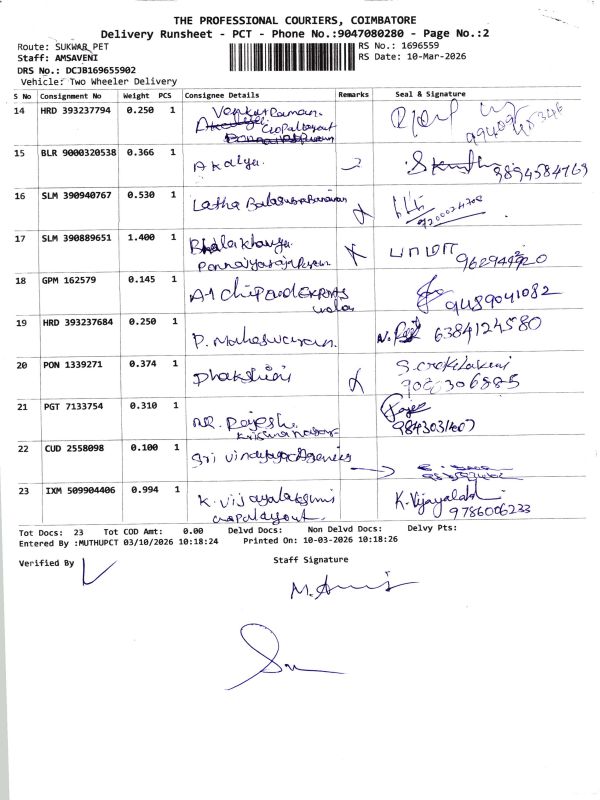 THE PROFESSIONAL COURIERS, COIMBATORE
Delivery Runsheet - PCT - Phone No.:9047080280 - Page No.:2
Route: SUKWAR PET
Staff: AMSAVENI
DRS No.: DCJB169655902
Vehicle: Two Wheeler Delivery
RS No.: 1696559
RS Date: 10-Mar-2026
S No Consignment No Weight PCS Consignee Details Remarks Seal & Signature
14 HRD 393237794 0.250 1 Venkat Raman Gopal layout
15 BLR 9000320538 0.366 1 Akalya 9894584769
16 SLM 390940767 0.530 1 Latha Balasubramaniam
17 SLM 390889651 1.400 1 Ponnaiyarajapuram யாமா
18 GPM 162579 0.145 1 A-1 chip and exports 9489041082
19 HRD 393237684 0.250 1 P. Maheswaran 6384124580
20 PON 1339271 0.374 1 Dhakshini
21 PGT 7133754 0.310 1 Rajesh Krishna nagar
22 CUD 2558098 0.100 1 Sri Vinayaga Agencies
23 IXM 509904406 0.994 1 K. Vijayalakshmi Gopal layout K. Vijayalaksh 9786006233
Tot Docs: 23 Tot COD Amt: 0.00 Delvd Docs: Non Delvd Docs: Delvy Pts:
Entered By :MUTHUPCT 03/10/2026 10:18:24 Printed On: 10-03-2026 10:18:26
Verified By
Staff Signature